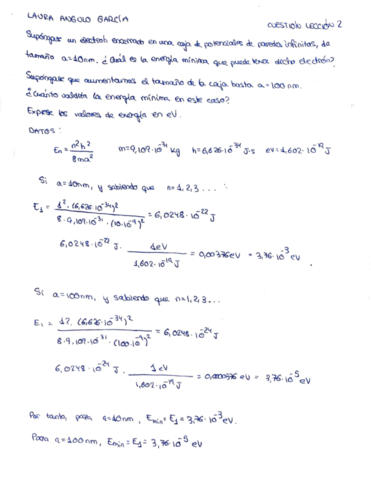 LAURA ANGULO GARCÍA
CUESTION LECCIÓN 2
Supóngase un electrón encerrado en una caja de potenciales de paredes infinitas, de
tamaño a=10nm. ¿Cuál es la energía mínima que puede tener dicho electrón?
Supóngase que aumentamos el tamaño de la caja hasta a=100 nm.
¿Cuánto valdría la energía mínima en este caso?
Exprese los valores de energía en eV.
DATOS:
En = n²h² / 8ma² m=9,109·10⁻³¹ kg h=6,626·10⁻³⁴ J·s eV=1,602·10⁻¹⁹ J
Si a=10nm, y sabiendo que n=1,2,3...
E₁ = 1²·(6,626·10⁻³⁴)² / 8·9,109·10⁻³¹·(10·10⁻⁹)² = 6,0248·10⁻²² J
6,0248·10⁻²² J · 1eV / 1,602·10⁻¹⁹ J = 0,00376eV = 3,76·10⁻³ eV
Si a=100nm, y sabiendo que n=1,2,3...
E₁ = 1²·(6,626·10⁻³⁴)² / 8·9,109·10⁻³¹·(100·10⁻⁹)² = 6,0248·10⁻²⁴ J
6,0248·10⁻²⁴ J · 1eV / 1,602·10⁻¹⁹ J = 0,0000376 eV = 3,76·10⁻⁵ eV
Por tanto, para a=10nm, Emin=E₁=3,76·10⁻³ eV.
Para a=100nm, Emin=E₁=3,76·10⁻⁵ eV